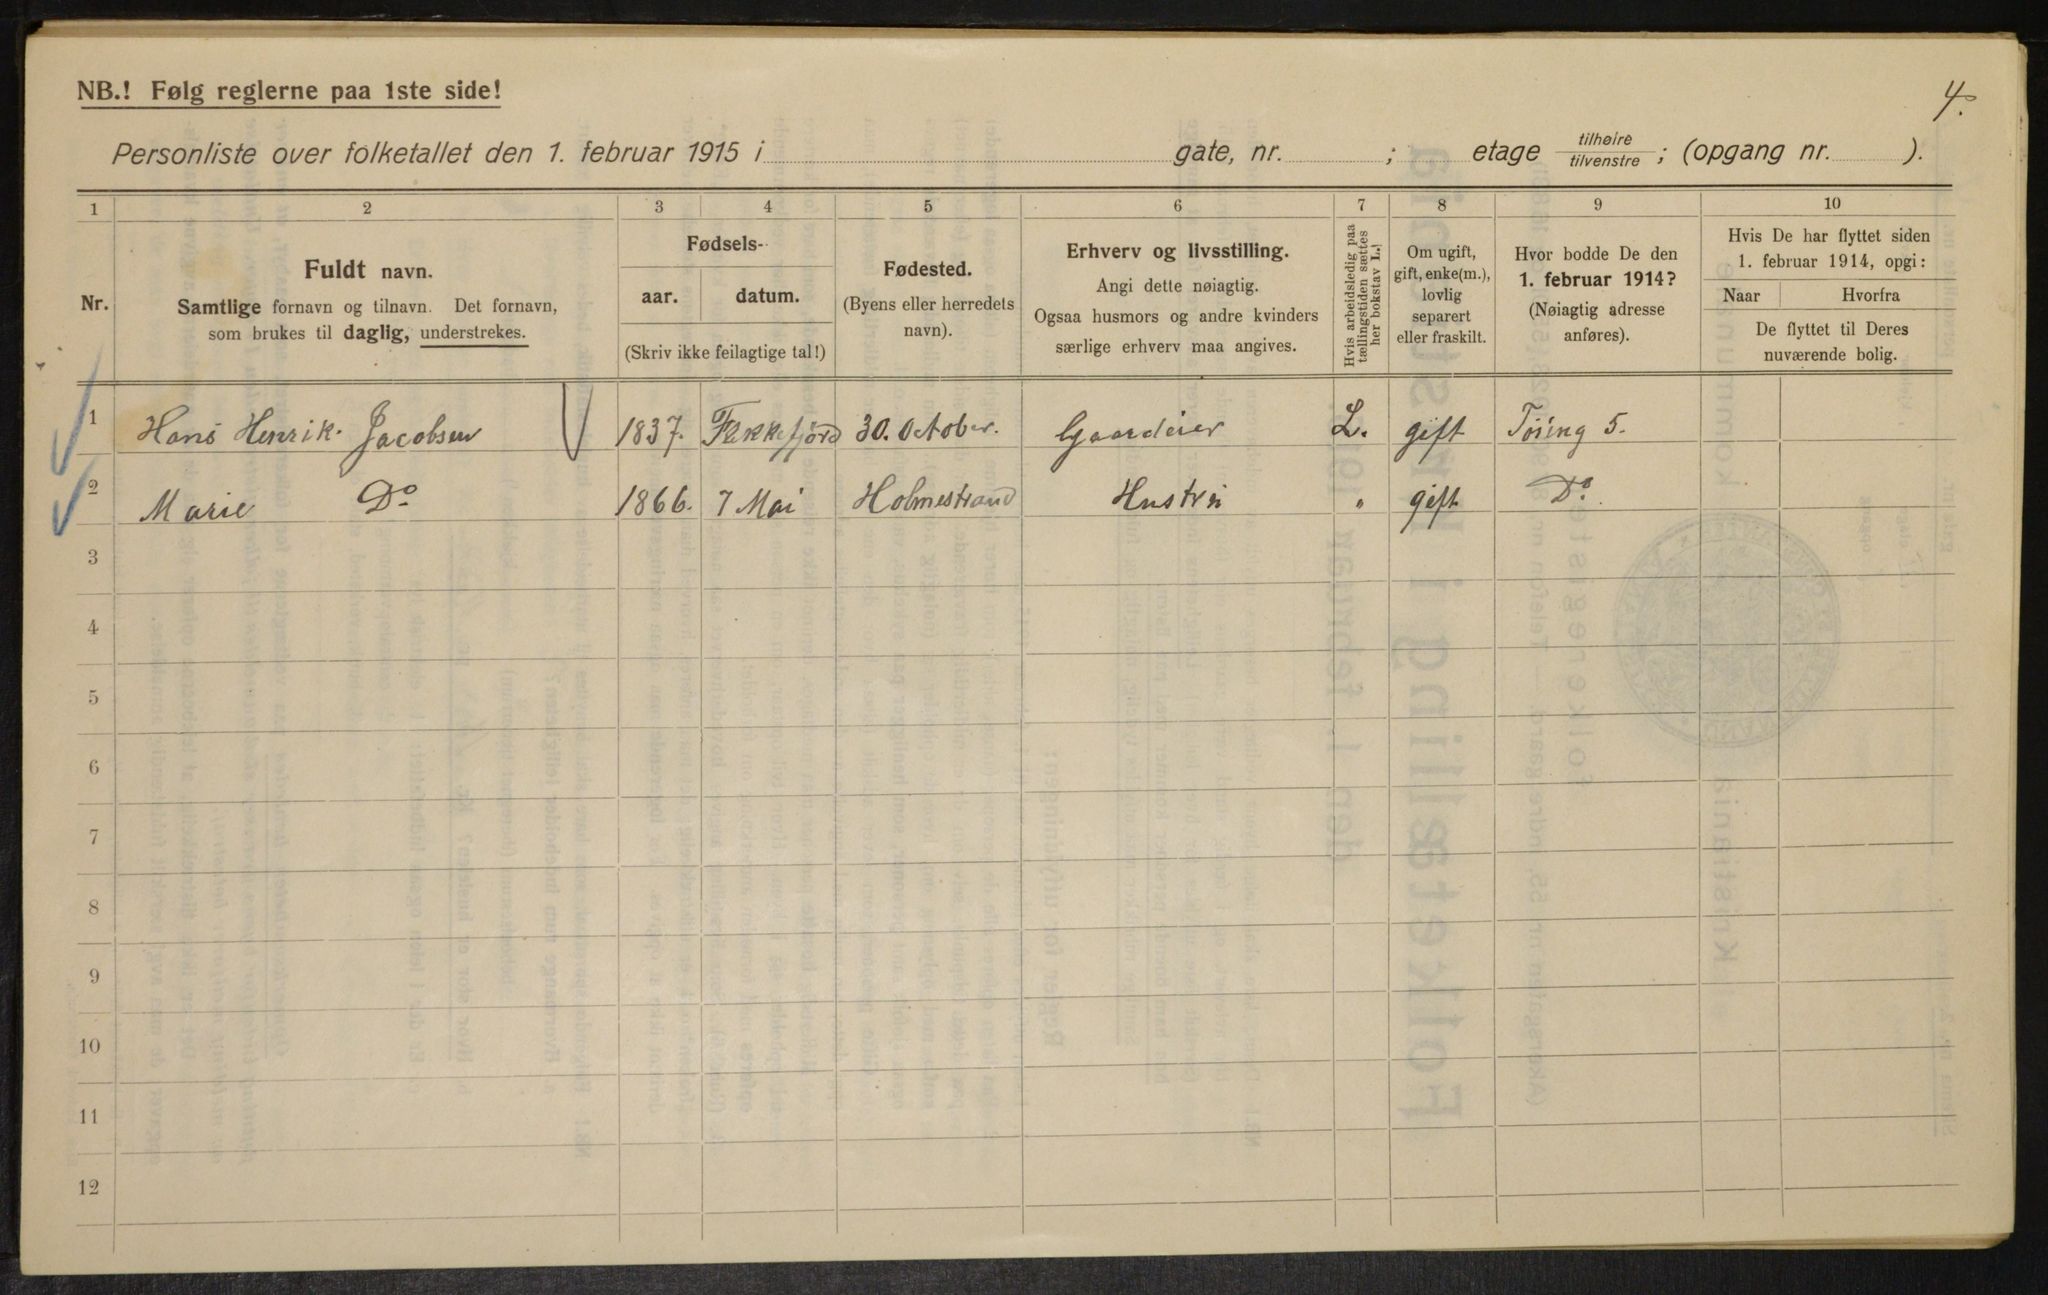 NB.! Følg reglerne paa 1ste side!
4.
Personliste over folketallet den 1. februar 1915 i gate, nr. ; etage tilhøire tilvenstre ; (opgang nr. ).
1 2 3 4 5 6 7 8 9 10
Nr.
Fuldt navn.
Samtlige fornavn og tilnavn. Det fornavn,
som brukes til daglig, understrekes.
Fødsels-
aar. datum.
(Skriv ikke feilagtige tal!)
Fødested.
(Byens eller herredets
navn).
Erhverv og livsstilling.
Angi dette nøiagtig.
Ogsaa husmors og andre kvinders
særlige erhverv maa angives.
Hvis arbeidsledig paa
tællingstiden sættes
her bokstav L.!
Om ugift,
gift, enke(m.),
lovlig
separert
eller fraskilt.
Hvor bodde De den
1. februar 1914?
(Nøiagtig adresse
anføres).
Hvis De har flyttet siden
1. februar 1914, opgi:
Naar Hvorfra
De flyttet til Deres
nuværende bolig.
1 Hans Henrik Jacobsen 1837. Flekkefjord 30. October. Gaardeier L. gift 5.
2 Marie Do 1866. 7 Mai Holmestrand Hustru " gift Do.
3
4
5
6
7
8
9
10
11
12